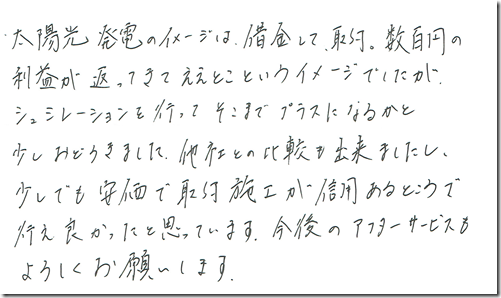 太陽光発電のイメージは、借金して取付。数百円の
利益が返ってきてええとこというイメージでしたが、
シュミレーションを行ってそこまでプラスになるかと
少しおどろきました。他社との比較も出来ましたし、
少しでも安価で取付施工が信用あるところで
行え良かったと思っています。今後のアフターサービスも
よろしくお願いします。